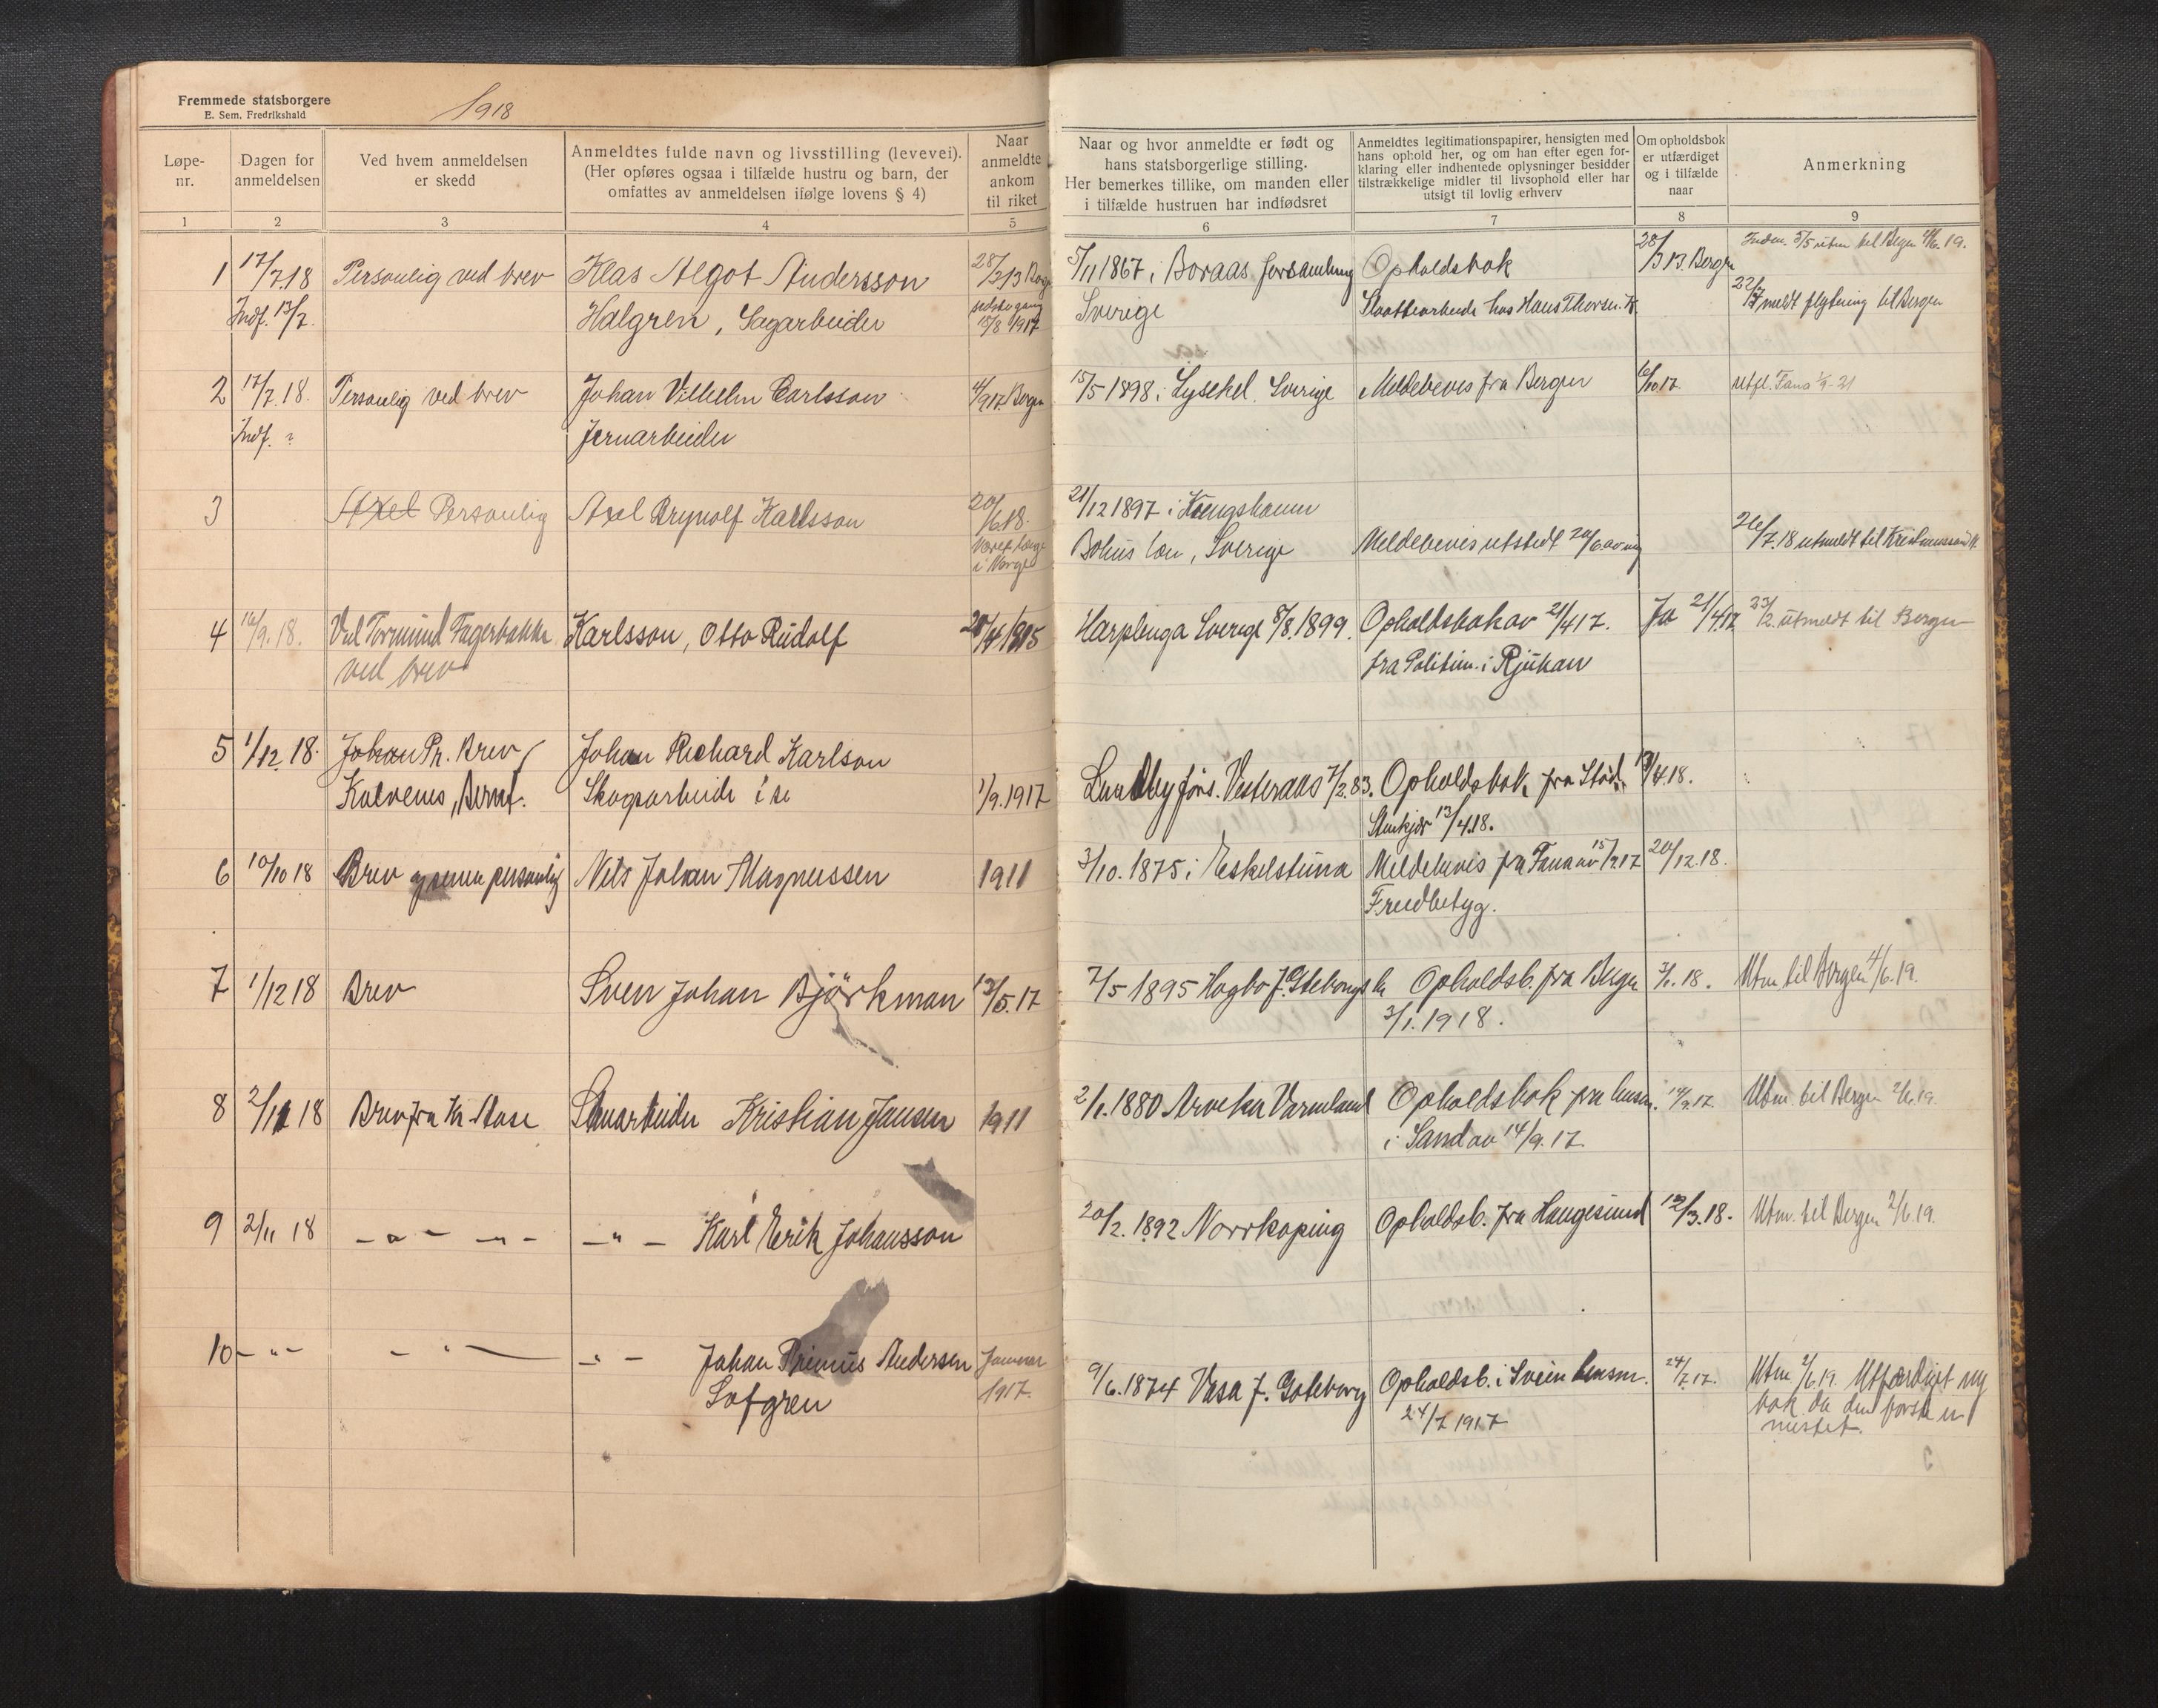 Fremmede statsborgere
E. Sem, Fredrikshald
1918
Løpe-
nr.
Dagen for
anmeldelsen
Ved hvem anmeldelsen
er skedd
Anmeldtes fulde navn og livsstilling (levevei).
(Her opføres ogsaa i tilfælde hustru og barn, der
omfattes av anmeldelsen ifølge lovens § 4)
Naar
anmeldte
ankom
til riket
Naar og hvor anmeldte er født og
hans statsborgerlige stilling.
Her bemerkes tillike, om manden eller
i tilfælde hustruen har indfødsret
Anmeldtes legitimationspapirer, hensigten med
hans ophold her, og om han efter egen for-
klaring eller indhentede oplysninger besidder
tilstrækkelige midler til livsophold eller har
utsigt til lovlig erhverv
Om opholdsbok
er utfærdiget
og i tilfælde
naar
Anmerkning
1 2 3 4 5 6 7 8 9
til Bergen 4/6. 19.
1 17/7 18 Personlig ved brev Klas Algot Andersson 28/3 13 5/11 1867 i Boraas forsamling Opholdsbok 28/3 13. Bergen
Indf. 13/7. Halgren, Sagarbeider 15/8 1917 Sverige hos Hans Thorsen meldt flytning til Bergen
2 17/7. 18. Personlig ved brev Johan Vilhelm Carlsson 4/9 17. Bergen 15/5 1898 i Lysekel Sverige Meldebevis fra Bergen 6/10 17. utfl. Fana 1/9-21
Indf. ? Jernarbeider
3 Axel Personlig Axel Brynolf Karlsson 20/6 18. 21/12 1897 i Kungshamn
i Norge Bohus læn, Sverige Meldebevis utstedt 20/6 av mig 26/7. 18 utmeldt til Kristianssund N.
4 16/9. 18. Ved Tormund Fagerbakke Karlsson, Otto Rudolf 20/4 1915 Harplinga Sverige 8/8. 1899. Opholdsbok av 21/4 17. Ja 21/4 17. 23/2. utmeldt til Bergen
ved brev fra Politim. i Rjukan
5 1/12. 18. Johan Pr. Brev Johan Richard Karlson
Kalvenes, Bernt. Skogsarbeider 1/9. 1917 Lundby fors. Vesteraas 7/2. 83. Opholdsbok fra Stod. 13/4 18.
Stenkjær 13/4 18.
6 10/10 18 Brev og senere personlig Nils Johan Magnussen 1911 3/10. 1875 i Eskelstuna Meldebevis fra Fana av 15/9 17 20/12. 18.
Fredbetyg.
7 1/12 18 Brev Sven Johan Björkman 13/5. 17 7/5 1895 Hogbo f. Gteborgs ln Opholdsb. fra Bergen 3/1. 18. Utm til Bergen 4/6. 19.
3/1. 1918.
8 2/11 18 Brev fra Kr. Aase Stenarbeider Kristian Jansen 1911 2/1. 1880 Arveka Varmland Opholdsbok fra lensm. 14/9. 17. Utm. til Bergen 2/6. 19.
i Sand av 14/9. 17.
9 2/11 18 - " - - " - - " - Karl Erik Johansson 20/2. 1892 Norrkoping Opholdsb. fra Haugesund 12/3. 18. Utm. til Bergen 2/6. 19.
10 - " - - " - - " - Johan Primus Andersen Januar 9/6. 1874 Vasa f. Goteborg Opholdsb. i Svein lensm. 24/7. 17. Utm 2/6. 19. Utfærdiget ny
Lofgren 1917. 24/7 1917 bok da den første er
mistet.